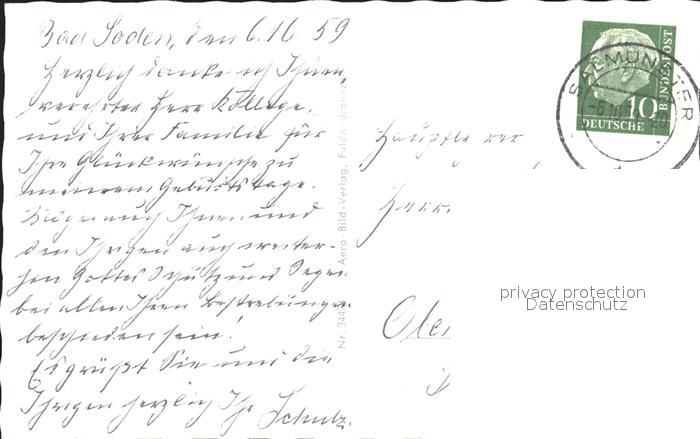 Bad Soden, den 6.10.59
Herzlich danke ich Ihnen,
verehrter Herr Kollege,
und Ihrer Familie für
Ihre Glückwünsche zu
meinem Geburtstage.
Möge auch Ihnen und
den Ihrigen auch weiter-
hin Gottes Schutz und Segen
bei allen Ihren Bestrebungen
beschieden sein!
Es grüßt Sie und die
Ihrigen herzlich Ihr Schulz.
Nr. 344 Aero-Bild-Verlag, Fulda
Herrn
SALMÜNSTER
-6.10.59
10
DEUTSCHE
BUNDESPOST
privacy protection
Datenschutz